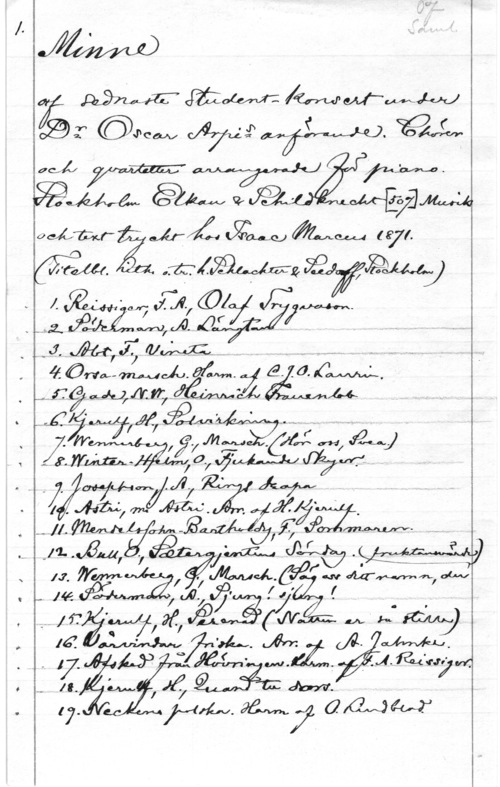 1.
Minne
af sednaste Student-Konsert under
Dr Oscar Arpis anförande. Chörer
och qvartetter arrangerade för piano.
Stockholm Elkan & Schildknecht [507] Musik
och text tryckt hos Isaac Marcus 1871.
(Titelbl. lith. o. tr. h. Schlachter & Seedorff, Stockholm)
1. Reissiger, F.A., Olaf Trygvason.
2. Söderman, A. Längtan
3. Abt, F., Vineta
4. Orsa-marsch. Harm. af C.J.O. Laurin.
5. Gade, N.W., Heinrich Frauenlob
6. Kjerulf, H., Solvirkning.
7. Wennerberg, G., Marsch. (Hör oss, Svea.)
8. Winter-Hjelm, O., Fjukande Skyer
9. Josephson, J.A., Rings drapa
10. Astri, m. Astri. Arr. af H. Kjerulf.
11. Mendelssohn-Bartholdy, F., Sommaren.
12. Bull, O., Sætergjentens Söndag.
13. Wennerberg, G., Marsch. (Säg oss ditt namn, du
14. Söderman, A., Sjung! sjung!
15. Kjerulf, H., Serenad (Natten er så stilla)
16. Vårvindar friska. Arr. af A. Jahnke.
17. Afsked från Hovringen. Harm. af F.A. Reissiger.
18. Kjerulf, H., Quand tu dors.
19. Neckens polska. Harm. af O. Lindblad